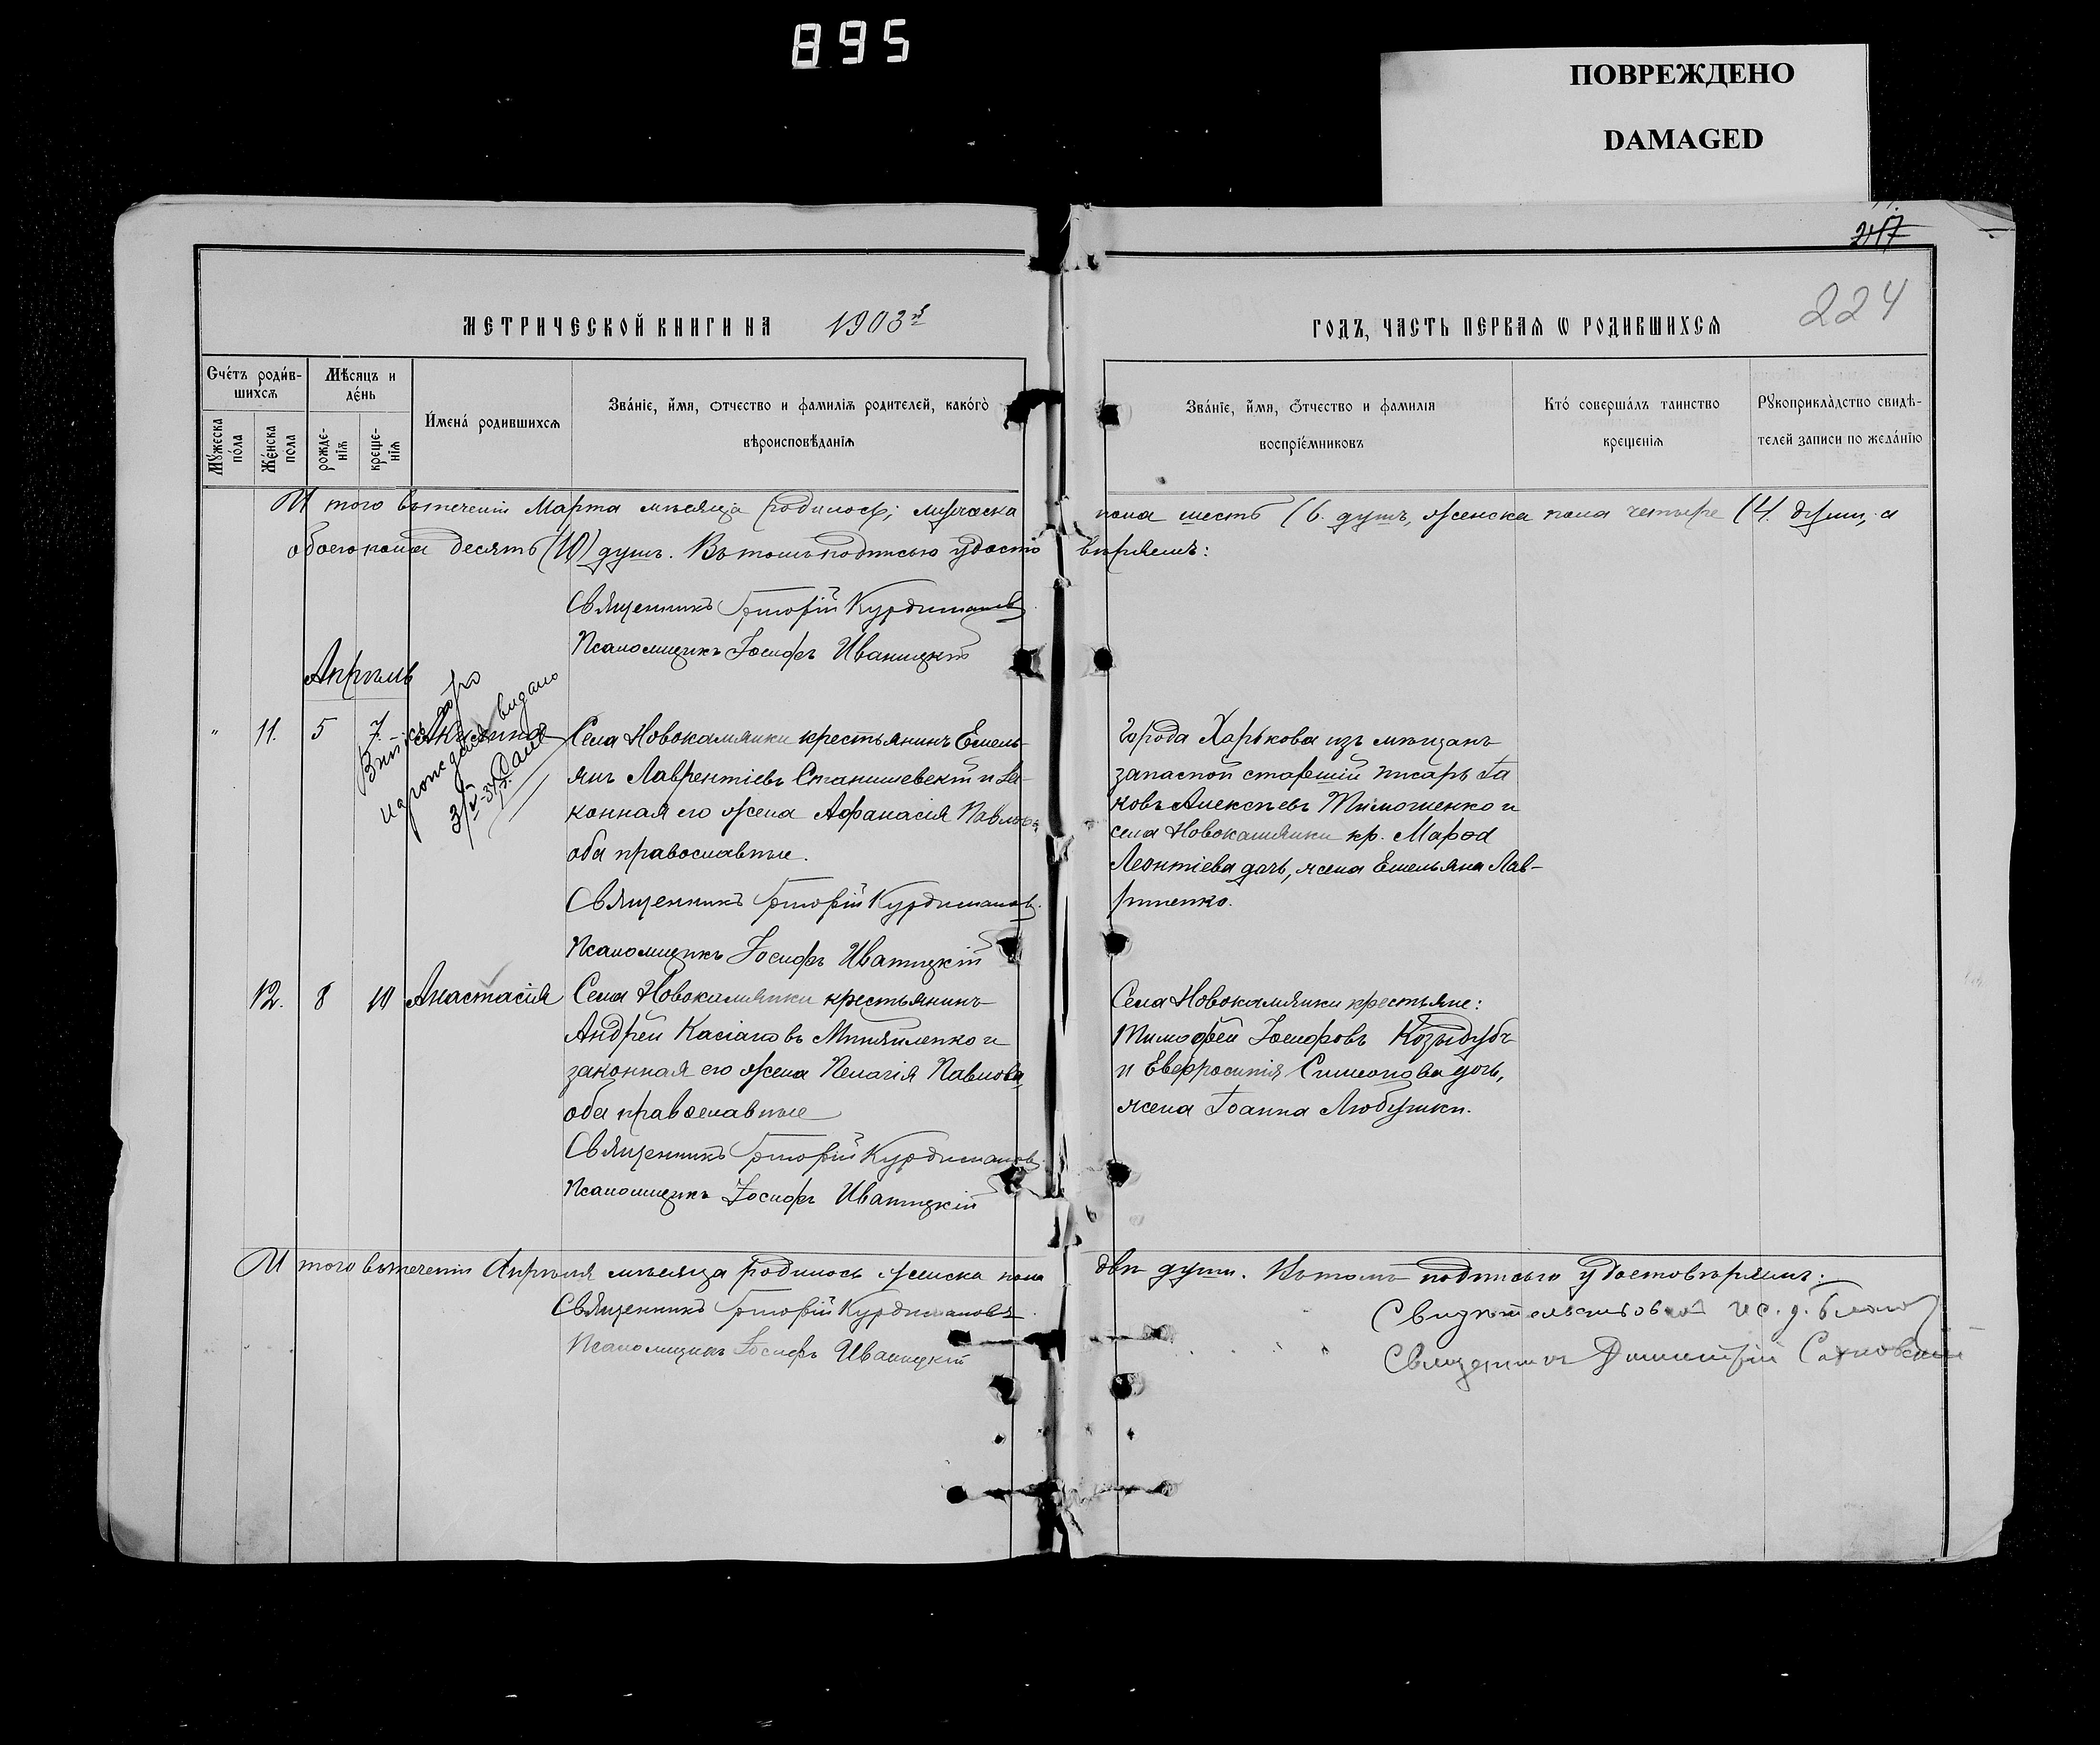 895
ПОВРЕЖДЕНО
DAMAGED
217
224
МЕТРИЧЕСКОЙ КНИГИ НА 1903й ГОДЪ, ЧАСТЬ ПЕРВАЯ Ѡ РОДИВШИХСЯ
Счéтъ роди́в-
шихсѧ
Мѣ́сяцъ и
де́нь
Мꙋ́жеска
по́ла
Же́нска
пола
рожде-
нїѧ
креще-
нїѧ
И҆мена̀ родившихсѧ
Зва́нїе, и҆́мя, ѻтчество и фамилїѧ родителей, како́гѡ
вѣроисповѣ́данїѧ
Зва́нїе, и҆́мя, ѻ҆́тчество и фамилїѧ
воспрїе́мниковъ
Кто̀ соверша́лъ таинство
крещенїѧ
Рꙋкоприкла̀дство свидѣ-
телей записи по жела́нїю
И того втеченіи Марта мѣсяца родилось; мужеска пола шесть (6. душъ, женска пола четыре (4. души, а
обоего пола десять (10) душъ. Въ томъ подписью удосто вѣряемъ:
Священникъ Григорій Курдиманов
Псаломщикъ Іосифъ Иваницкій
Апрѣль
" 11. 5 7.
Село Новокамянки крестьянинъ Емель-
янъ Лаврентіевъ Станишевскій и за-
конная его жена Афанасія Павлова
оба православные.
Священникъ Григорій Курдиманов.
Псаломщикъ Іосифъ Иваницкій
видано
Города Харькова изъ мѣщанъ
запасной старшій писарь Іа
ковъ Алексѣевъ Тимошенко и
села Новокамянки кр. Мароа
Леонтіева дочь, жена Емельяна Лав-
риненко.
12. 8 10 Анастасія
Села Новокамянки крестьянинъ
Андрей Касіановъ Миняйленко и
законная его жена Пелагія Павлова,
оба православные
Священникъ Григорій Курдиманов.
Псаломщикъ Іосифъ Иваницкій
Села Новокамянки крестьяне:
Тимофей Іосифовъ Козыдубъ
и Евфросинія Симеонова дочь,
жена Іоанна Любушки.
И того втеченіи Апрѣля мѣсяца родилось женска пола двѣ души. Въ томъ подписью удостовѣряемъ:
Священникъ Григорій Курдимановъ
Псаломщикъ Іосифъ Иваницкій
Свидѣтельствовал ис. д.
Священникъ Димитрій